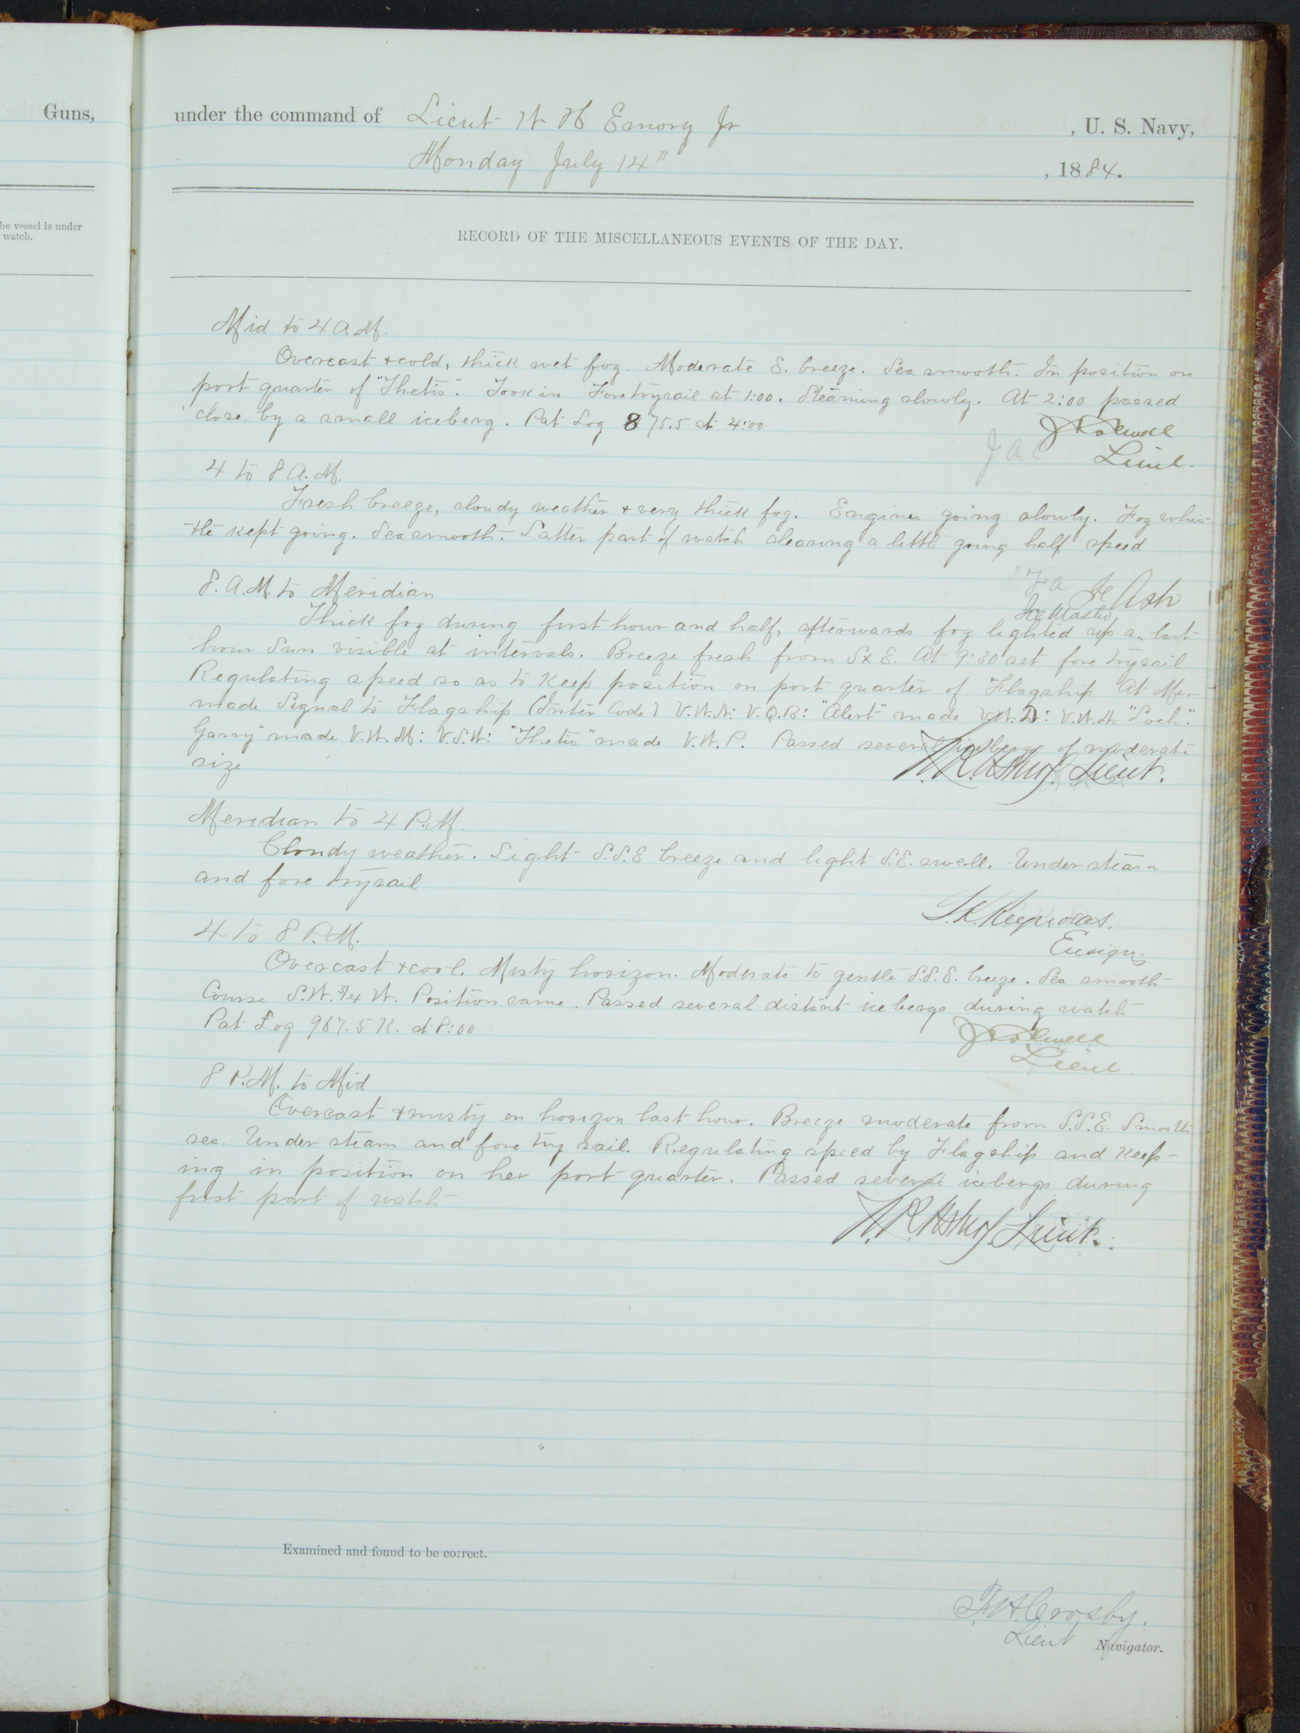 Guns,
he vessel is under
watch.
under the command of Lieut W H Emory Jr , U. S. Navy,
Monday July 14" , 1884.
RECORD OF THE MISCELLANEOUS EVENTS OF THE DAY.
Mid to 4 A.M.
Overcast + cold, thick wet fog. Moderate S. breeze. Sea smooth. In position on
port quarter of "Thetis". Took in Foretrysail at 1:00. Steaming slowly. At 2:00 passed
close by a small iceberg. Pat Log 875.5 at 4:00
Lieut.
4 to 8 A.M.
Fresh breeze, cloudy weather + very thick fog. Engines going slowly. Fog whis-
tle kept going. Sea smooth. Latter part of watch clearing a little going half speed
Ash
Ice Master
8. A.M. to Meridian
Thick fog during first hour and half, afterwards fog lighted up a, last
hour Sun visible at intervals. Breeze fresh from SxE. At 9:30 set fore trysail
Regulating speed so as to keep position on port quarter of Flagship At Me-
made Signal to Flagship (Inter Code) V.Q.B: "Alert" made "Loch"
Garry" made "Thetis" made V.W.P. Passed several icebergs of moderate
size
Lieut.
Meridian to 4 P.M.
Cloudy weather. Light S.S.E breeze and light S.E. swell. Under steam
and fore trysail
Reynolds.
Ensign.
4 to 8 P.M.
Overcast + cool. Misty horizon. Moderate to gentle S.S.E. breeze. Sea smooth
Course S.W. 3/4 W. Position same. Passed several distant ice bergs during watch
Pat Log 967.5 K. at 8:00
Lieut.
8 P.M. to Mid
Overcast + misty on horizon last hour. Breeze moderate from S.S.E. Smooth
sea. Under steam and fore try sail. Regulating speed by Flagship and keep-
ing in position on her port quarter. Passed several icebergs during
first part of watch
Lieut.
Examined and found to be correct.
Crosby.
Lieut Navigator.